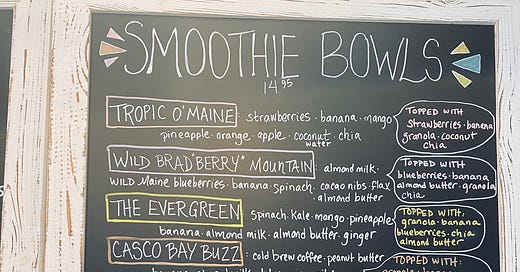 SMOOTHIE BOWLS
14.95
TROPIC O'MAINE: strawberries · banana · mango
pineapple · orange · apple · coconut water · chia
TOPPED WITH
strawberries · banana
granola · coconut
chia
WILD BRAD"BERRY" MOUNTAIN: almond milk ·
WILD Maine blueberries · banana · spinach · cacao nibs · flax
almond butter
TOPPED WITH
blueberries · banana
almond butter · granola
chia
THE EVERGREEN: spinach · kale · mango · pineapple
banana · almond milk · almond butter · ginger
TOPPED WITH,
granola · banana
blueberries · chia
almond butter
CASCO BAY BUZZ: cold brew coffee · peanut butter
TOPPED WITH: